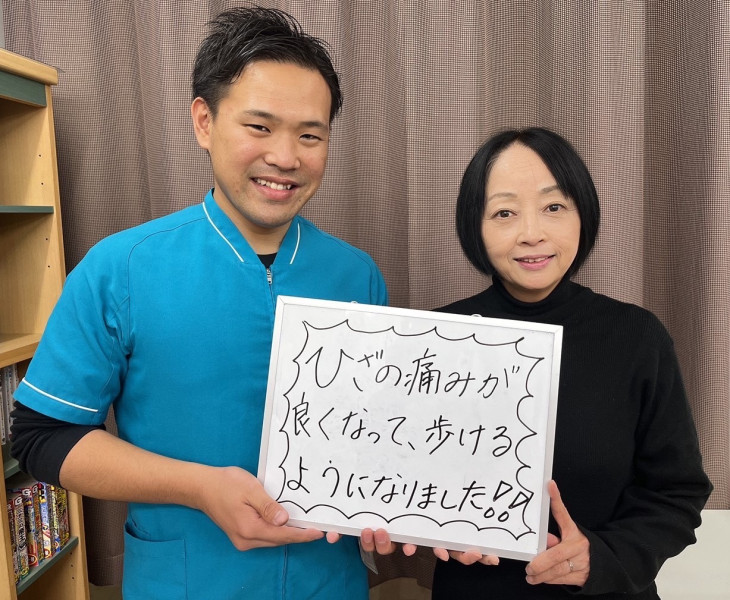 ひざの痛みが
良くなって、歩ける
ようになりました!!